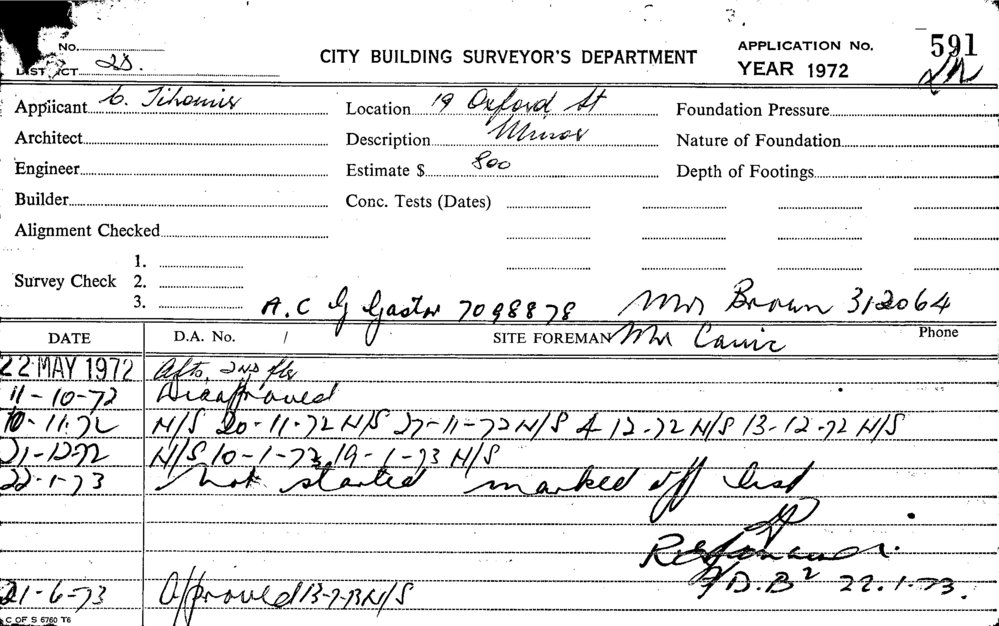 No.
CITY BUILDING SURVEYOR'S DEPARTMENT
APPLICATION No. 591
DISTRICT 2S.
YEAR 1972
Applicant C. Tihomir
Location 19 Oxford St
Foundation Pressure
Architect
Description Minor
Nature of Foundation
Engineer
Estimate $ 800
Depth of Footings
Builder
Conc. Tests (Dates)
Alignment Checked
1.
Survey Check 2.
3.
A.C G Gaston 7098878 Mr Brown 312064
DATE D.A. No. / SITE FOREMAN Mr Phone
22 MAY 1972 2ND flr
11-10-72 Disapproved
10-11-72 N/S 20-11-72 N/S 27-11-72 N/S 4 12-72 N/S 13-12-72 N/S
21-12-72 N/S 10-1-73, 19-1-73 N/S
22-1-73 Not started marked off list
D.B² 22.1.73.
21-6-73 Approved 13-7-73 N/S
C OF S 6760 T6